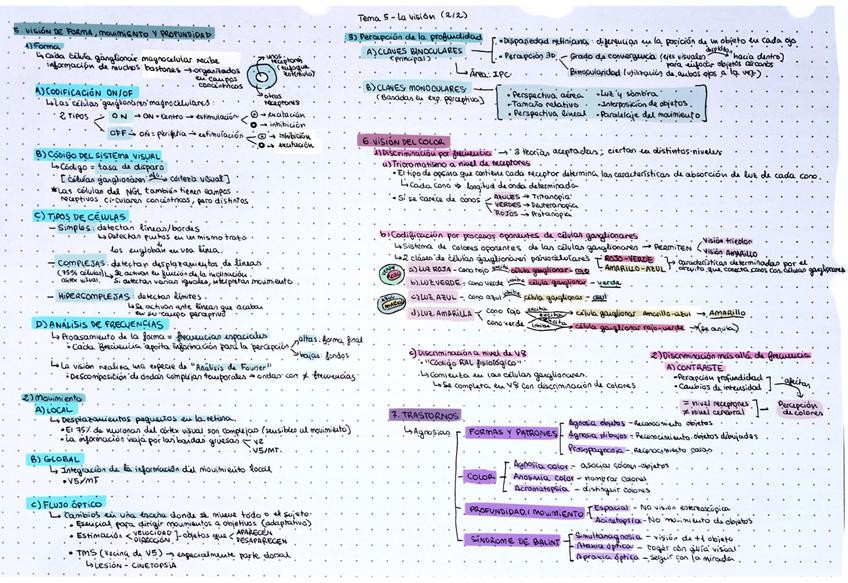 Tema 5 - La visión (2/2)
5. VISIÓN DE FORMA, MOVIMIENTO Y PROFUNDIDAD
1) Forma
↳ Cada célula ganglionar magnocelular recibe
información de muchos bastones → organizados
en campos
concéntricos
unos
receptores
otros
receptores
A) CODIFICACIÓN ON/OF
↳ Las células ganglionares magnocelulares:
2 TIPOS
ON → ON = centro → estimulación
→ excitación
→ inhibición
OFF → ON = periferia → estimulación
→ inhibición
→ excitación
B) CÓDIGO DEL SISTEMA VISUAL
↳ Código = tasa de disparo
[células ganglionares → corteza visual]
* Las células del NGL también tienen campos
receptivos circulares concéntricos, pero distintos
C) TIPOS DE CÉLULAS
- Simples: detectan líneas/bordes
↳ Detectan puntos en un mismo trato
↳ los engloban en una línea.
- COMPLEJAS: detectan desplazamientos de líneas
(75% células) ↳ Se activan en función de la inclinación.
córtex visual. Si detectan varias iguales, interpretan movimiento
- HIPERCOMPLEJAS: detectan límites.
↳ Se activan ante líneas que acaban
en su campo perceptivo
D) ANÁLISIS DE FRECUENCIAS
↳ Procesamiento de la forma = frecuencias espaciales
• Cada frecuencia aporta información para la percepción
altas: forma final
bajas: fondos
↳ La visión realiza una especie de "Análisis de Fourier"
• Descomposición de ondas complejas temporales → ondas con ≠ frecuencias
2) Movimiento
A) LOCAL
↳ Desplazamientos pequeños en la retina.
• El 75% de neuronas del córtex visual son complejas (sensibles al movimiento)
• La información viaja por las bandas gruesas
V2
V5/MT
B) GLOBAL
↳ Integración de la información del movimiento local
• V5/MT
C) FLUJO ÓPTICO
↳ Cambios en una escena donde se mueve todo o el sujeto
• Esencial para dirigir movimientos a objetivos (adaptativo)
• Estimación
VELOCIDAD
DIRECCIÓN
- objetos que
APARECEN
DESAPARECEN
• TMS (vecina de V5) → especialmente parte dorsal
↳ LESIÓN - CINETOPSIA
3) Percepción de la profundidad
A) CLAVES BINOCULARES
(principal)
• Disparidad retiniana: diferencias en la posición de un objeto en cada ojo
• Percepción 3D
Grado de convergencia (ejes visuales hacia dentro)
para enfocar objetos cercanos
Binocularidad (utilización de ambos ojos a la vez)
↳ Área: IPC
B) CLAVES MONOCULARES
(Basadas en exp. perceptiva)
• Perspectiva aérea • Luz y sombra
• Tamaño relativo • Interposición de objetos
• Perspectiva lineal • Paralelaje del movimiento
6. VISIÓN DEL COLOR
1) Discriminación por frecuencia → 3 teorías aceptadas; ciertas en distintos niveles
a) Tricromatismo a nivel de receptores
• El tipo de opsina que contiene cada receptor determina las características de absorción de luz de cada cono.
↳ Cada cono → longitud de onda determinada
• Si se carece de conos
AZULES → Tritanopía
VERDES → Deuteranopía
ROJOS → Protanopía
b) Codificación por procesos oponentes de células ganglionares
↳ Sistema de colores oponentes de las células ganglionares → PERMITEN
Visión tricolor
Visión AMARILLO
↳ 2 clases de células ganglionares parvocelulares
ROJO-VERDE
AMARILLO-AZUL
características determinadas por el
circuito que conecta conos con células ganglionares
a) LUZ ROJA - cono rojo → célula ganglionar - rojo
b) LUZ VERDE - cono verde → célula ganglionar - verde
c) LUZ AZUL - cono azul → célula ganglionar - azul
d) LUZ AMARILLA
cono rojo → célula ganglionar Amarillo-azul → Amarillo
cono verde → célula ganglionar rojo-verde → (se anula)
c) Discriminación a nivel de V8
• "Código RAL fisiológico"
↳ Comienza en las células ganglionares.
↳ Se completa en V8 con discriminación de colores
2) Discriminación más allá de frecuencia
A) CONTRASTE
• Percepción profundidad
• Cambios de intensidad
afectan
= nivel receptores
≠ nivel cerebral
Percepción
de colores
7. TRASTORNOS
↳ Agnosias
FORMAS Y PATRONES
Agnosia objetos - Reconocimiento objetos
Agnosia dibujos - Reconocimiento objetos dibujados
Prosopagnosia - reconocimiento caras
COLOR
Agnosia color - asociar colores-objetos
Anomia color - nombrar colores
Acromatopsia - distinguir colores
PROFUNDIDAD / MOVIMIENTO
Espacial - No visión estereoscópica
Acinetopsia - No movimiento de objetos
SÍNDROME DE BALINT
Simultanagnosia - visión de +1 objeto
Ataxia óptica - coger con guía visual
Apraxia óptica - seguir con la mirada